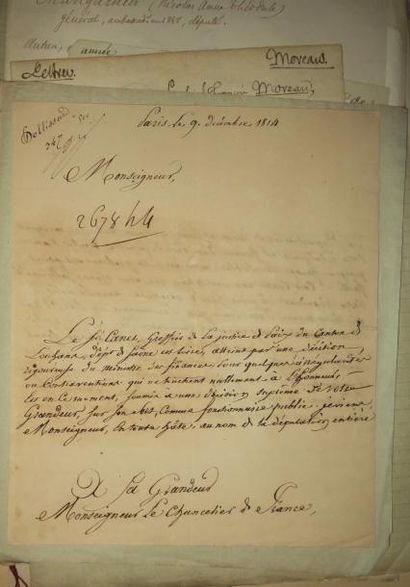 Changarnier (Nicolas Anne Théodule)
général,
député.
Autun,
année
Moreau
Lettres
Moreau,
Paris le 9. décembre 1814
Monseigneur,
2678
Le Sr Canet, Greffier de la justice de Paix du Canton de
Louhans, dépt de Saône et Loire, atteint par une décision
rigoureuse du ministre des finances, pour quelques irrégularités
ou Contraventions qui ne touchent nullement à l'honneur,
Suprême de Votre
Grandeur, Sur Son Sort, Comme fonctionnaire public. je viens,
Monseigneur, En toute hâte, au nom de la députation entière
A Sa Grandeur
Monseigneur Le Chancelier de France,